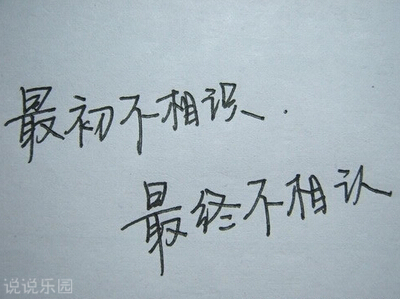 最初不相识.
最终不相认
说说乐园